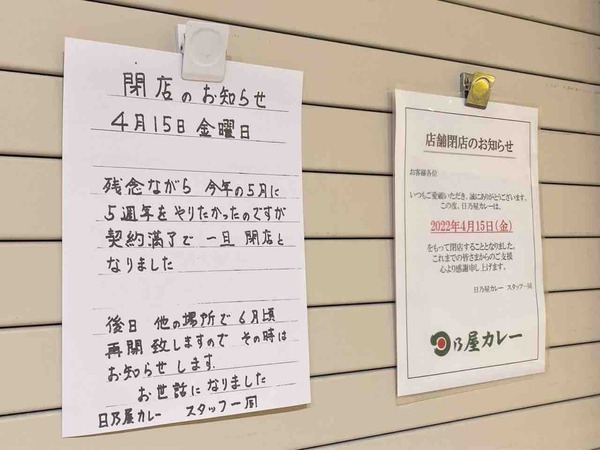 閉店のお知らせ
4月15日 金曜日
残念ながら 今年の5月に
5週年をやりたかったのですが
契約満了で 一旦 閉店と
なりました
後日 他の場所で 6月頃
再開 致しますので その時は
お知らせ します.
お世話に なりました
日乃屋カレー スタッフ一同
店舗閉店のお知らせ
お客様各位
いつもご愛顧いただき、誠にありがとうございます。
この度、日乃屋カレーは、
2022年4月15日(金)
をもって閉店することとなりました。
これまでの皆さまからのご支援
心より感謝申し上げます。
日乃屋カレー スタッフ一同
日乃屋カレー